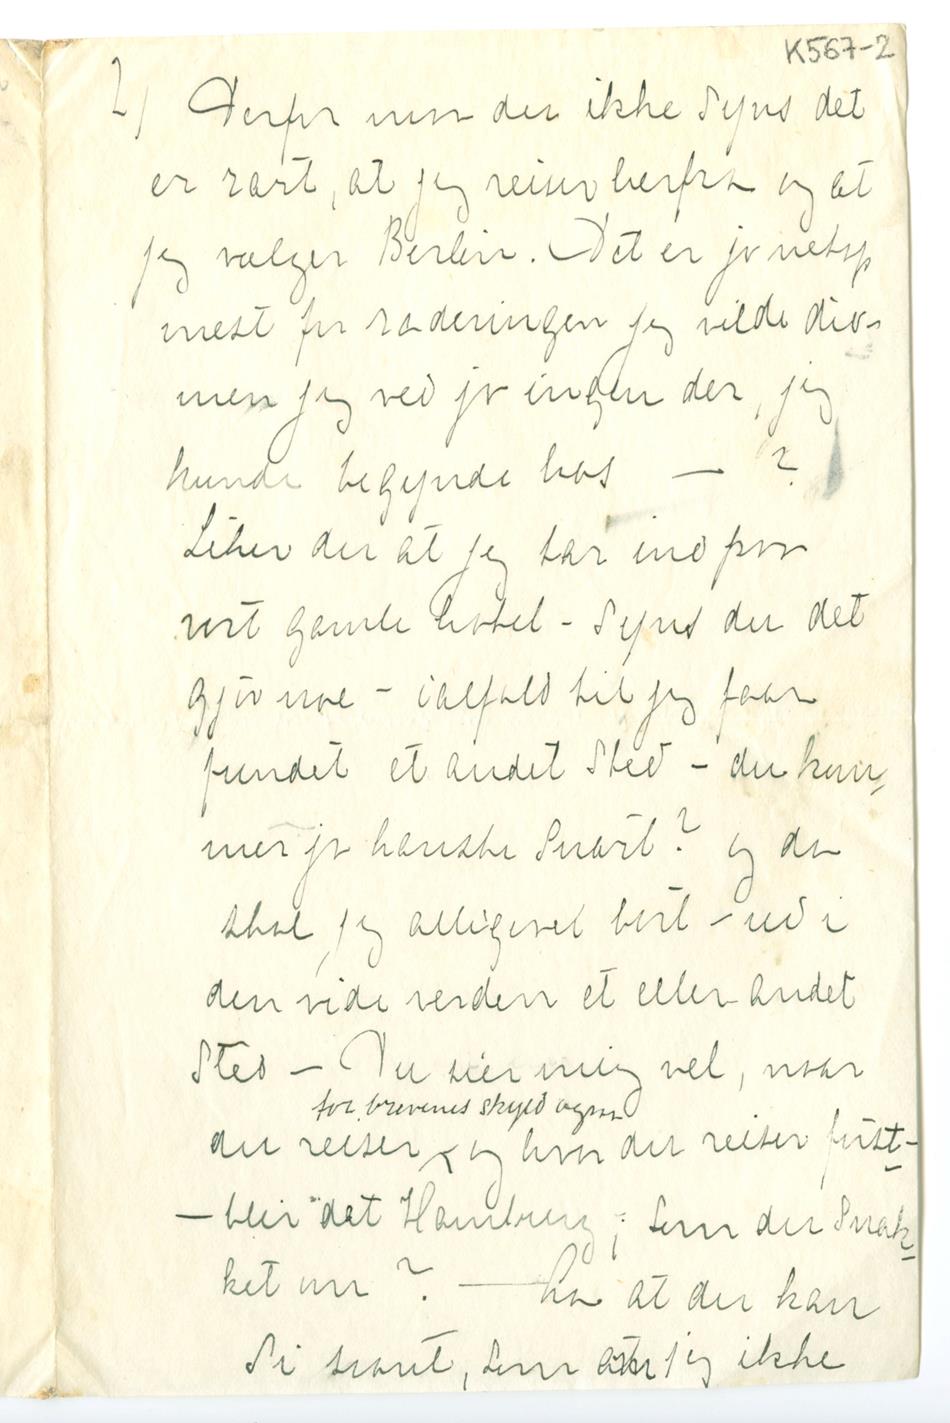 K567-2
2) Derfor maa du ikke synes det
er rart, at jeg reiser herfra og at
jeg vælger Berlin. Det er jo netop
mest for raderingen jeg vilde dit –
men jeg ved jo ingen der, jeg
kunde begynde hos — ?
Liker du at jeg tar ind paa
vort gamle hotel – synes du det
gjør noe – ialfald til jeg faar
fundet et andet sted – du kom-
mer jo kanske snart? og da
skal jeg alligevel bort – ud i
den vide verden et eller andet
sted – Du sier mig vel, naar
for brevenes skyld ogsaa
du reiser og hvor du reiser først –
– blir det Hamburg, som du snak-
ket om ? — Ha at du kan
si saant, som at jeg ikke